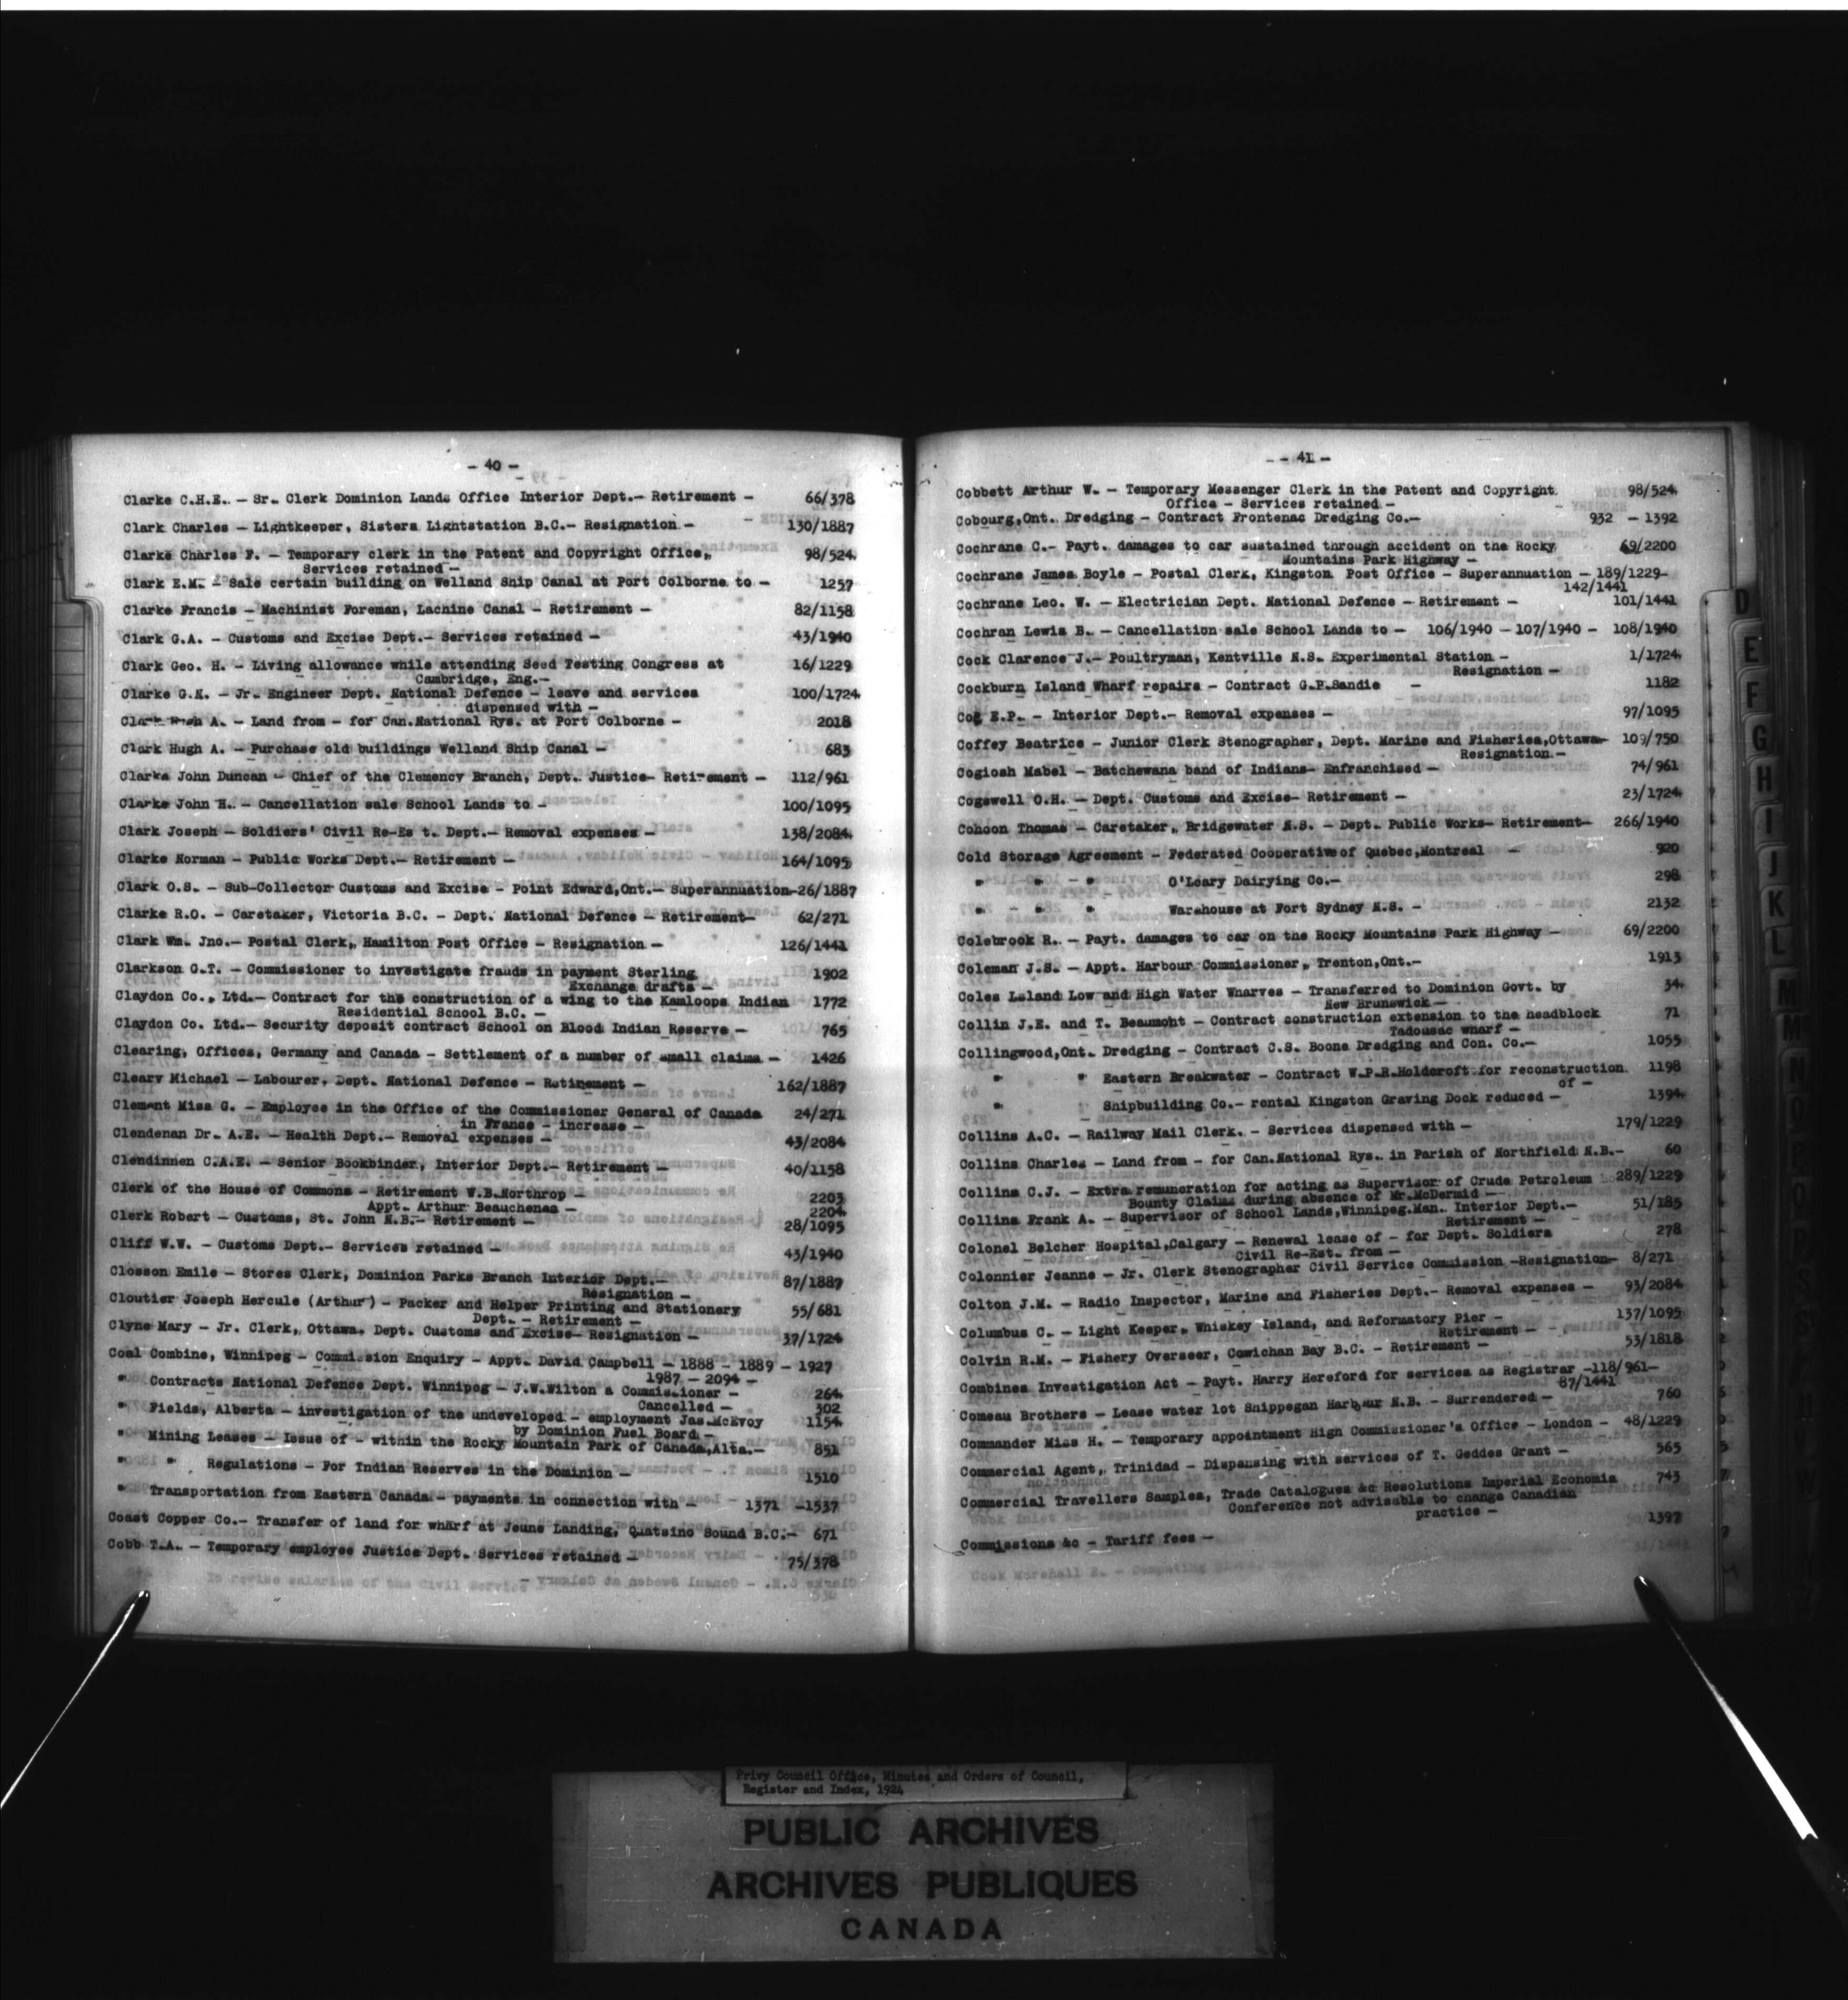 - 40 -
Clarke C.H.E. - Sr. Clerk Dominion Lands Office Interior Dept.- Retirement - 66/378
Clark Charles - Lightkeeper, Sisters Lightstation B.C.- Resignation - 130/1887
Clarke Charles F. - Temporary clerk in the Patent and Copyright Office, 98/524
Services retained -
Clark E.M. - Sale certain building on Welland Ship Canal at Port Colborne to - 1257
Clarke Francis - Machinist Foreman, Lachine Canal - Retirement - 82/1158
Clark G.A. - Customs and Excise Dept.- Services retained - 43/1940
Clark Geo. H. - Living allowance while attending Seed Testing Congress at 16/1229
Cambridge, Eng.-
Clarke G.K. - Jr. Engineer Dept. National Defence - leave and services 100/1724
dispensed with -
Clark A. - Land from - for Can.National Rys. at Port Colborne - 2018
Clark Hugh A. - Purchase old buildings Welland Ship Canal - 683
Clarke John Duncan - Chief of the Clemency Branch, Dept. Justice- Retirement - 112/961
Clarke John H. - Cancellation sale School Lands to - 100/1095
Clark Joseph - Soldiers' Civil Re-Es t. Dept.- Removal expenses - 138/2084
Clarke Norman - Public Works Dept.- Retirement - 164/1095
Clark O.S. - Sub-Collector Customs and Excise - Point Edward,Ont.- Superannuation-26/1887
Clarke R.O. - Caretaker, Victoria B.C. - Dept. National Defence - Retirement- 62/271
Clark Wm. Jno.- Postal Clerk, Hamilton Post Office - Resignation - 126/1441
Clarkson G.T. - Commissioner to investigate frauds in payment Sterling 1902
Exchange drafts -
Claydon Co., Ltd.- Contract for the construction of a wing to the Kamloops Indian 1772
Residential School B.C. -
Claydon Co. Ltd.- Security deposit contract School on Blood Indian Reserve - 765
Clearing, Offices, Germany and Canada - Settlement of a number of small claims - 1426
Cleary Michael - Labourer, Dept. National Defence - Retirement - 162/1887
Clement Miss G. - Employee in the Office of the Commissioner General of Canada 24/271
in France - increase -
Clendenan Dr. A.E. - Health Dept.- Removal expenses - 43/2084
Clendinnen C.A.E. - Senior Bookbinder, Interior Dept.- Retirement - 40/1158
Clerk of the House of Commons - Retirement W.B.Northrop - 2203
Appt. Arthur Beauchenes - 2204
Clerk Robert - Customs, St. John N.B.- Retirement - 28/1095
Cliff W.W. - Customs Dept.- Services retained - 43/1940
Closson Emile - Stores Clerk, Dominion Parks Branch Interior Dept.- 87/1887
Resignation -
Cloutier Joseph Hercule (Arthur) - Packer and Helper Printing and Stationery 55/681
Dept. - Retirement -
Clyne Mary - Jr. Clerk, Ottawa. Dept. Customs and Excise- Resignation - 37/1724
Coal Combine, Winnipeg - Commission Enquiry - Appt. David Campbell - 1888 - 1889 - 1927
1987 - 2094 -
" Contracts National Defence Dept. Winnipeg - J.W.Wilton a Commissioner - 264
Cancelled - 302
" Fields, Alberta - investigation of the undeveloped - employment Jas.McEvoy 1154
by Dominion Fuel Board -
" Mining Leases - Issue of - within the Rocky Mountain Park of Canada,Alta.- 851
" " Regulations - For Indian Reserves in the Dominion - 1510
" Transportation from Eastern Canada - payments in connection with - 1371 -1537
Coast Copper Co.- Transfer of land for wharf at Jeune Landing, Quatsino Sound B.C.- 671
Cobb T.A. - Temporary employee Justice Dept. Services retained - 75/378
- 41 -
Cobbett Arthur W. - Temporary Messenger Clerk in the Patent and Copyright 98/524
Office - Services retained -
Cobourg,Ont. Dredging - Contract Frontenac Dredging Co.- 932 - 1392
Cochrane C.- Payt. damages to car sustained through accident on the Rocky 69/2200
Mountains Park Highway -
Cochrane James Boyle - Postal Clerk, Kingston Post Office - Superannuation - 189/1229-
142/1441
Cochrane Leo. W. - Electrician Dept. National Defence - Retirement - 101/1441
Cochran Lewis B. - Cancellation sale School Lands to - 106/1940 - 107/1940 - 108/1940
Cock Clarence J.- Poultryman, Kentville N.S. Experimental Station - 1/1724
Resignation -
Cockburn Island Wharf repairs - Contract G.P.Sandie - 1182
E.P. - Interior Dept.- Removal expenses - 97/1095
Coffey Beatrice - Junior Clerk Stenographer, Dept. Marine and Fisheries,Ottawa- 109/750
Resignation.-
Cogiosh Mabel - Batchewana band of Indians- Enfranchised - 74/961
Cogswell O.H. - Dept. Customs and Excise- Retirement - 23/1724
Cohoon Thomas - Caretaker, Bridgewater N.S. - Dept. Public Works- Retirement- 266/1940
Cold Storage Agreement - Federated Cooperative of Quebec,Montreal - 920
" " " O'Leary Dairying Co.- 298
" - " " Warehouse at Port Sydney N.S. - 2132
Colebrook R. - Payt. damages to car on the Rocky Mountains Park Highway - 69/2200
Coleman J.S. - Appt. Harbour Commissioner, Trenton,Ont.- 1913
Coles Island Low and High Water Wharves - Transferred to Dominion Govt. by 34
New Brunswick -
Collin J.E. and T. Beaumont - Contract construction extension to the headblock 71
Tadousac wharf -
Collingwood,Ont. Dredging - Contract C.S. Boone Dredging and Con. Co.- 1055
" " Eastern Breakwater - Contract W.P.R.Holdcroft for reconstruction 1198
of -
" Shipbuilding Co.- rental Kingston Graving Dock reduced - 1394
Collins A.C. - Railway Mail Clerk. - Services dispensed with - 179/1229
Collins Charles - Land from - for Can.National Rys. in Parish of Northfield N.B.- 60
Collins C.J. - Extra remuneration for acting as Supervisor of Crude Petroleum 289/1229
Bounty Claims during absence of Mr.McDermid -
Collins Frank A. - Supervisor of School Lands,Winnipeg.Man. Interior Dept.- 51/185
Retirement -
Colonel Belcher Hospital,Calgary - Renewal lease of - for Dept. Soldiers 278
Civil Re-Est. from -
Colonnier Jeanne - Jr. Clerk Stenographer Civil Service Commission -Resignation- 8/271
Colton J.M. - Radio Inspector, Marine and Fisheries Dept.- Removal expenses - 93/2084
Columbus C. - Light Keeper, Whiskey Island, and Reformatory Pier - 137/1095
Retirement -
Colvin R.M. - Fishery Overseer, Cowichan Bay B.C. - Retirement - 53/1818
Combines Investigation Act - Payt. Harry Hereford for services as Registrar -118/961-
87/1441
Comeau Brothers - Lease water lot Shippegan Harbour N.B. - Surrendered - 760
Commander Miss H. - Temporary appointment High Commissioner's Office - London - 48/1229
Commercial Agent, Trinidad - Dispensing with services of T. Geddes Grant - 565
Commercial Travellers Samples, Trade Catalogues &c Resolutions Imperial Economic 743
Conference not advisable to change Canadian
practice -
Commissions &c - Tariff fees - 1397
D
E
F
G
H
I
J
K
L
M
N
Privy Council Office, Minutes and Orders of Council,
Register and Index, 1924
PUBLIC ARCHIVES
ARCHIVES PUBLIQUES
CANADA